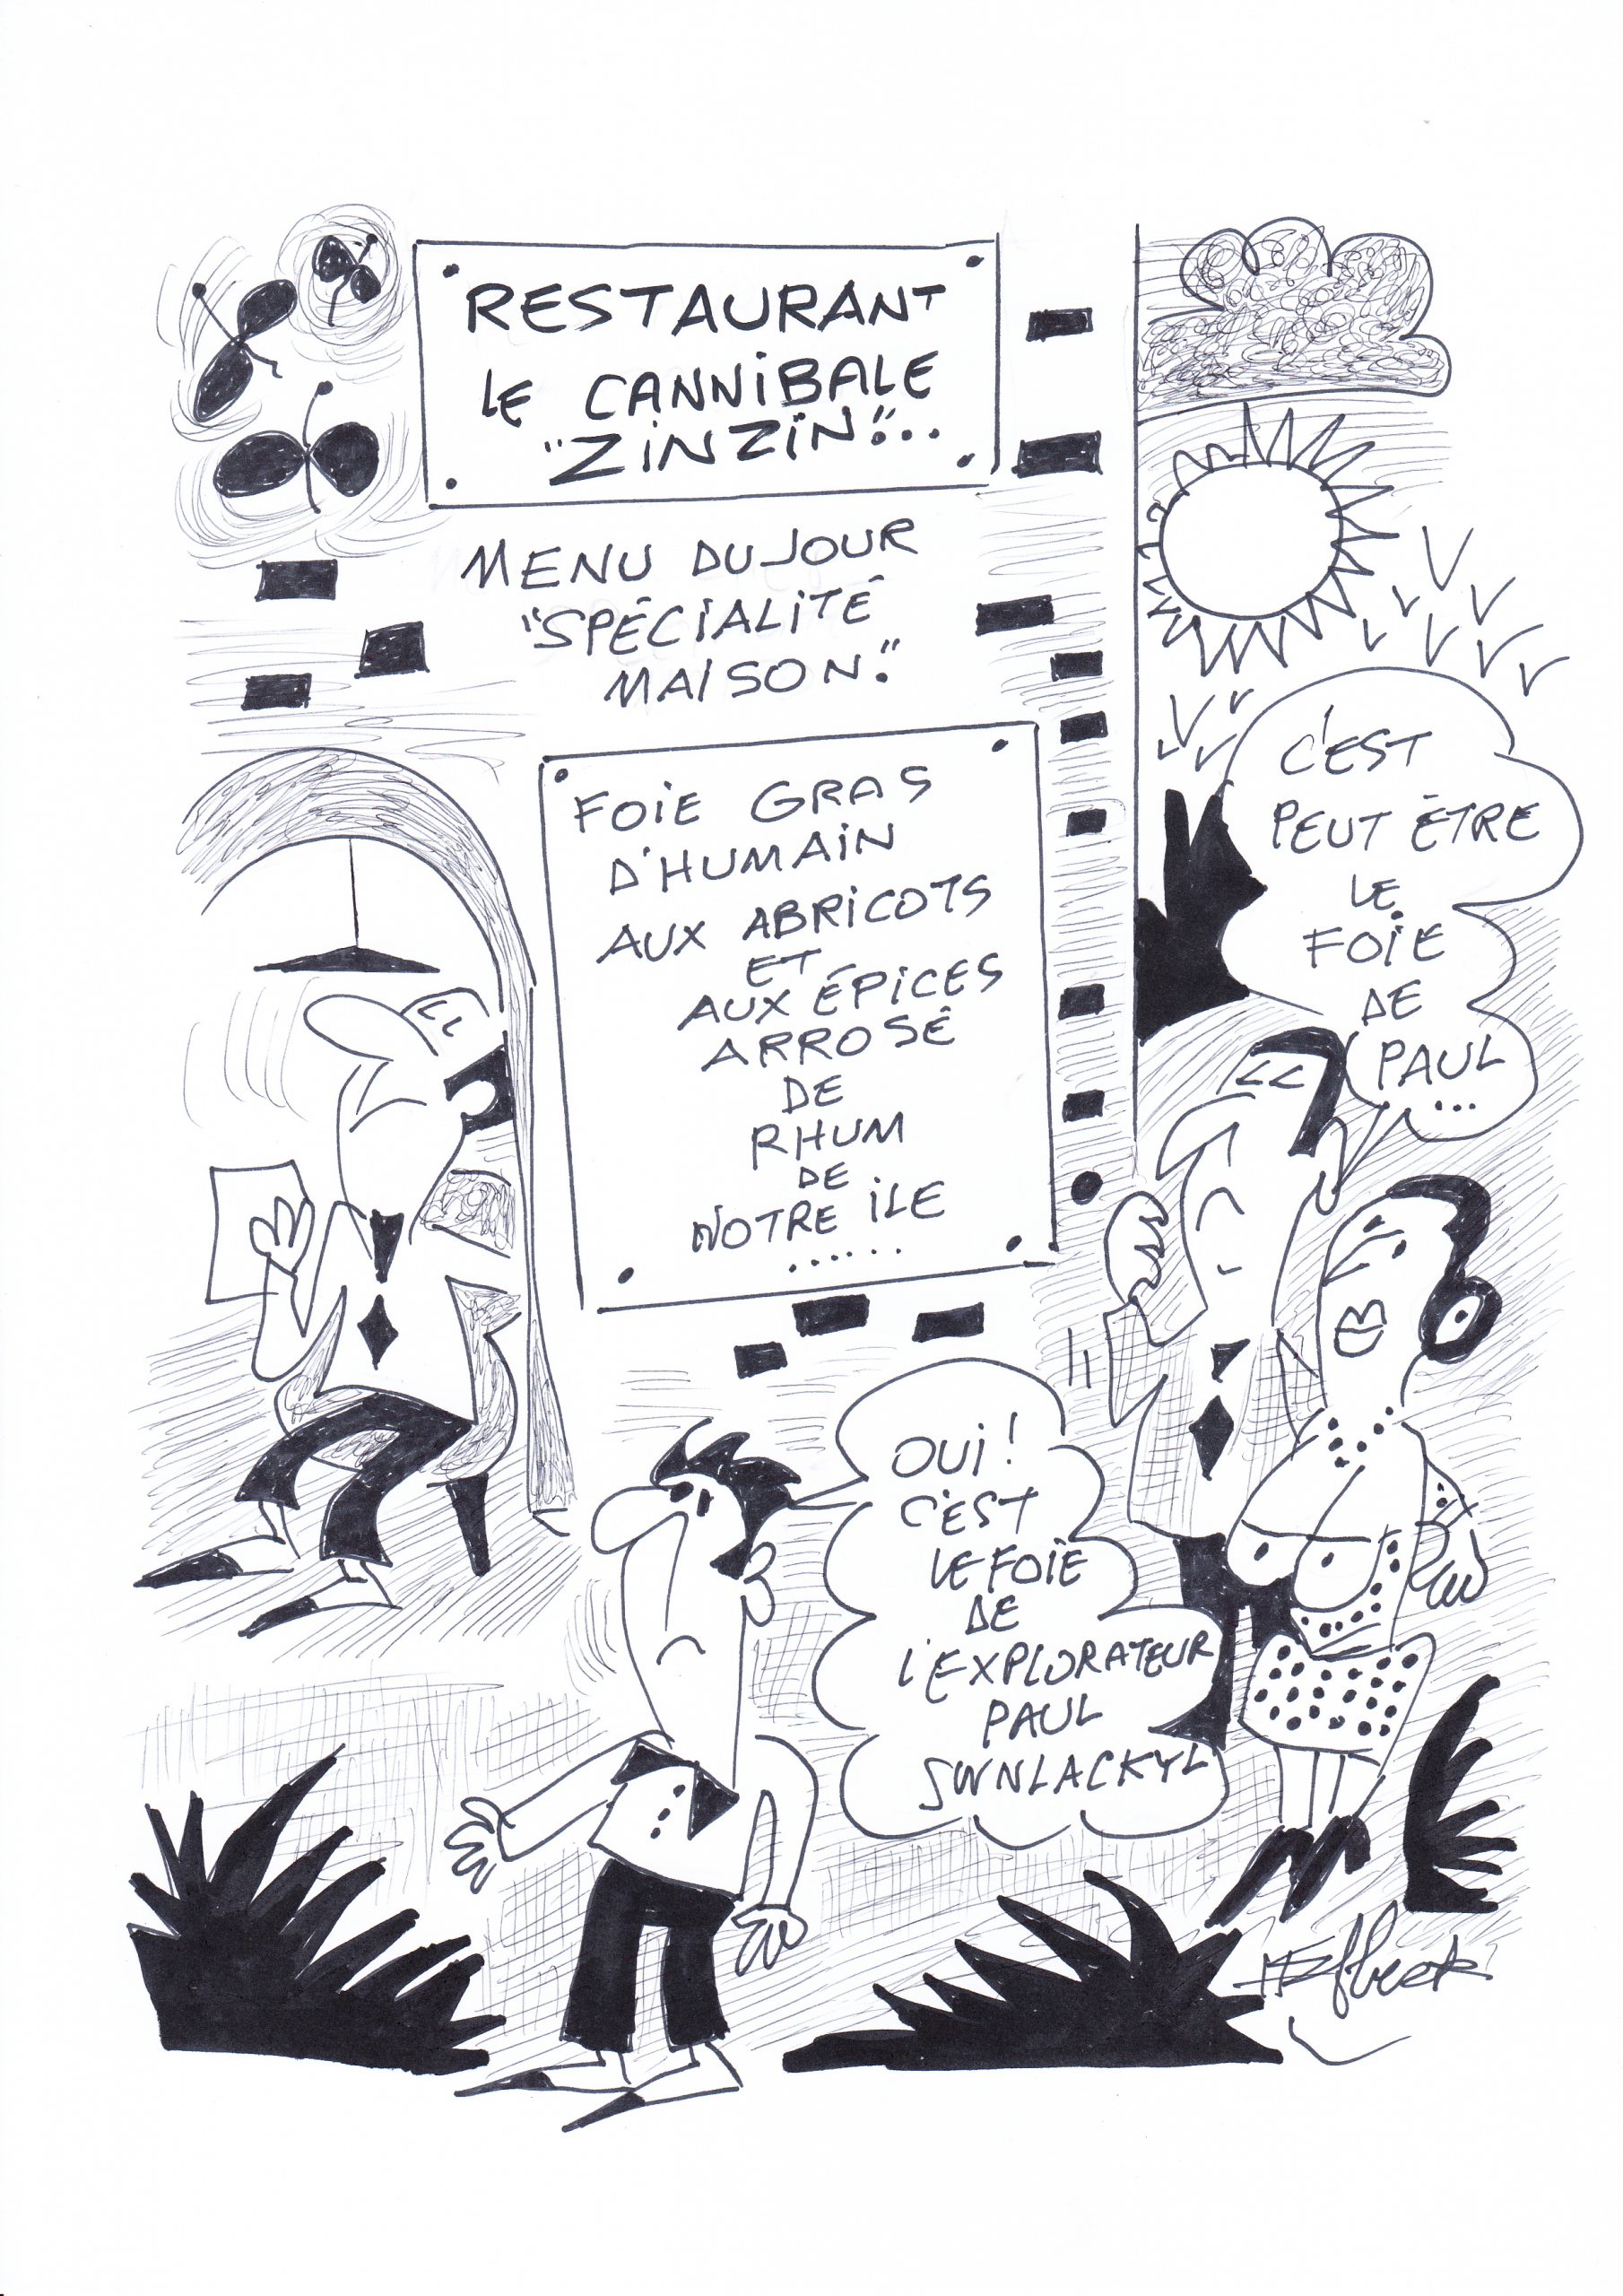 RESTAURANT
LE CANNIBALE
"ZINZIN"...
MENU DU JOUR
"SPÉCIALITÉ
MAISON".
FOIE GRAS
D'HUMAIN
AUX ABRICOTS
ET
AUX ÉPICES
ARROSÉ
DE
RHUM
DE
NOTRE ILE
......
C'EST
PEUT ÊTRE
LE
FOIE
DE
PAUL
...
OUI!
C'EST
LE FOIE
DE
L'EXPLORATEUR
PAUL
SWNLACKYL